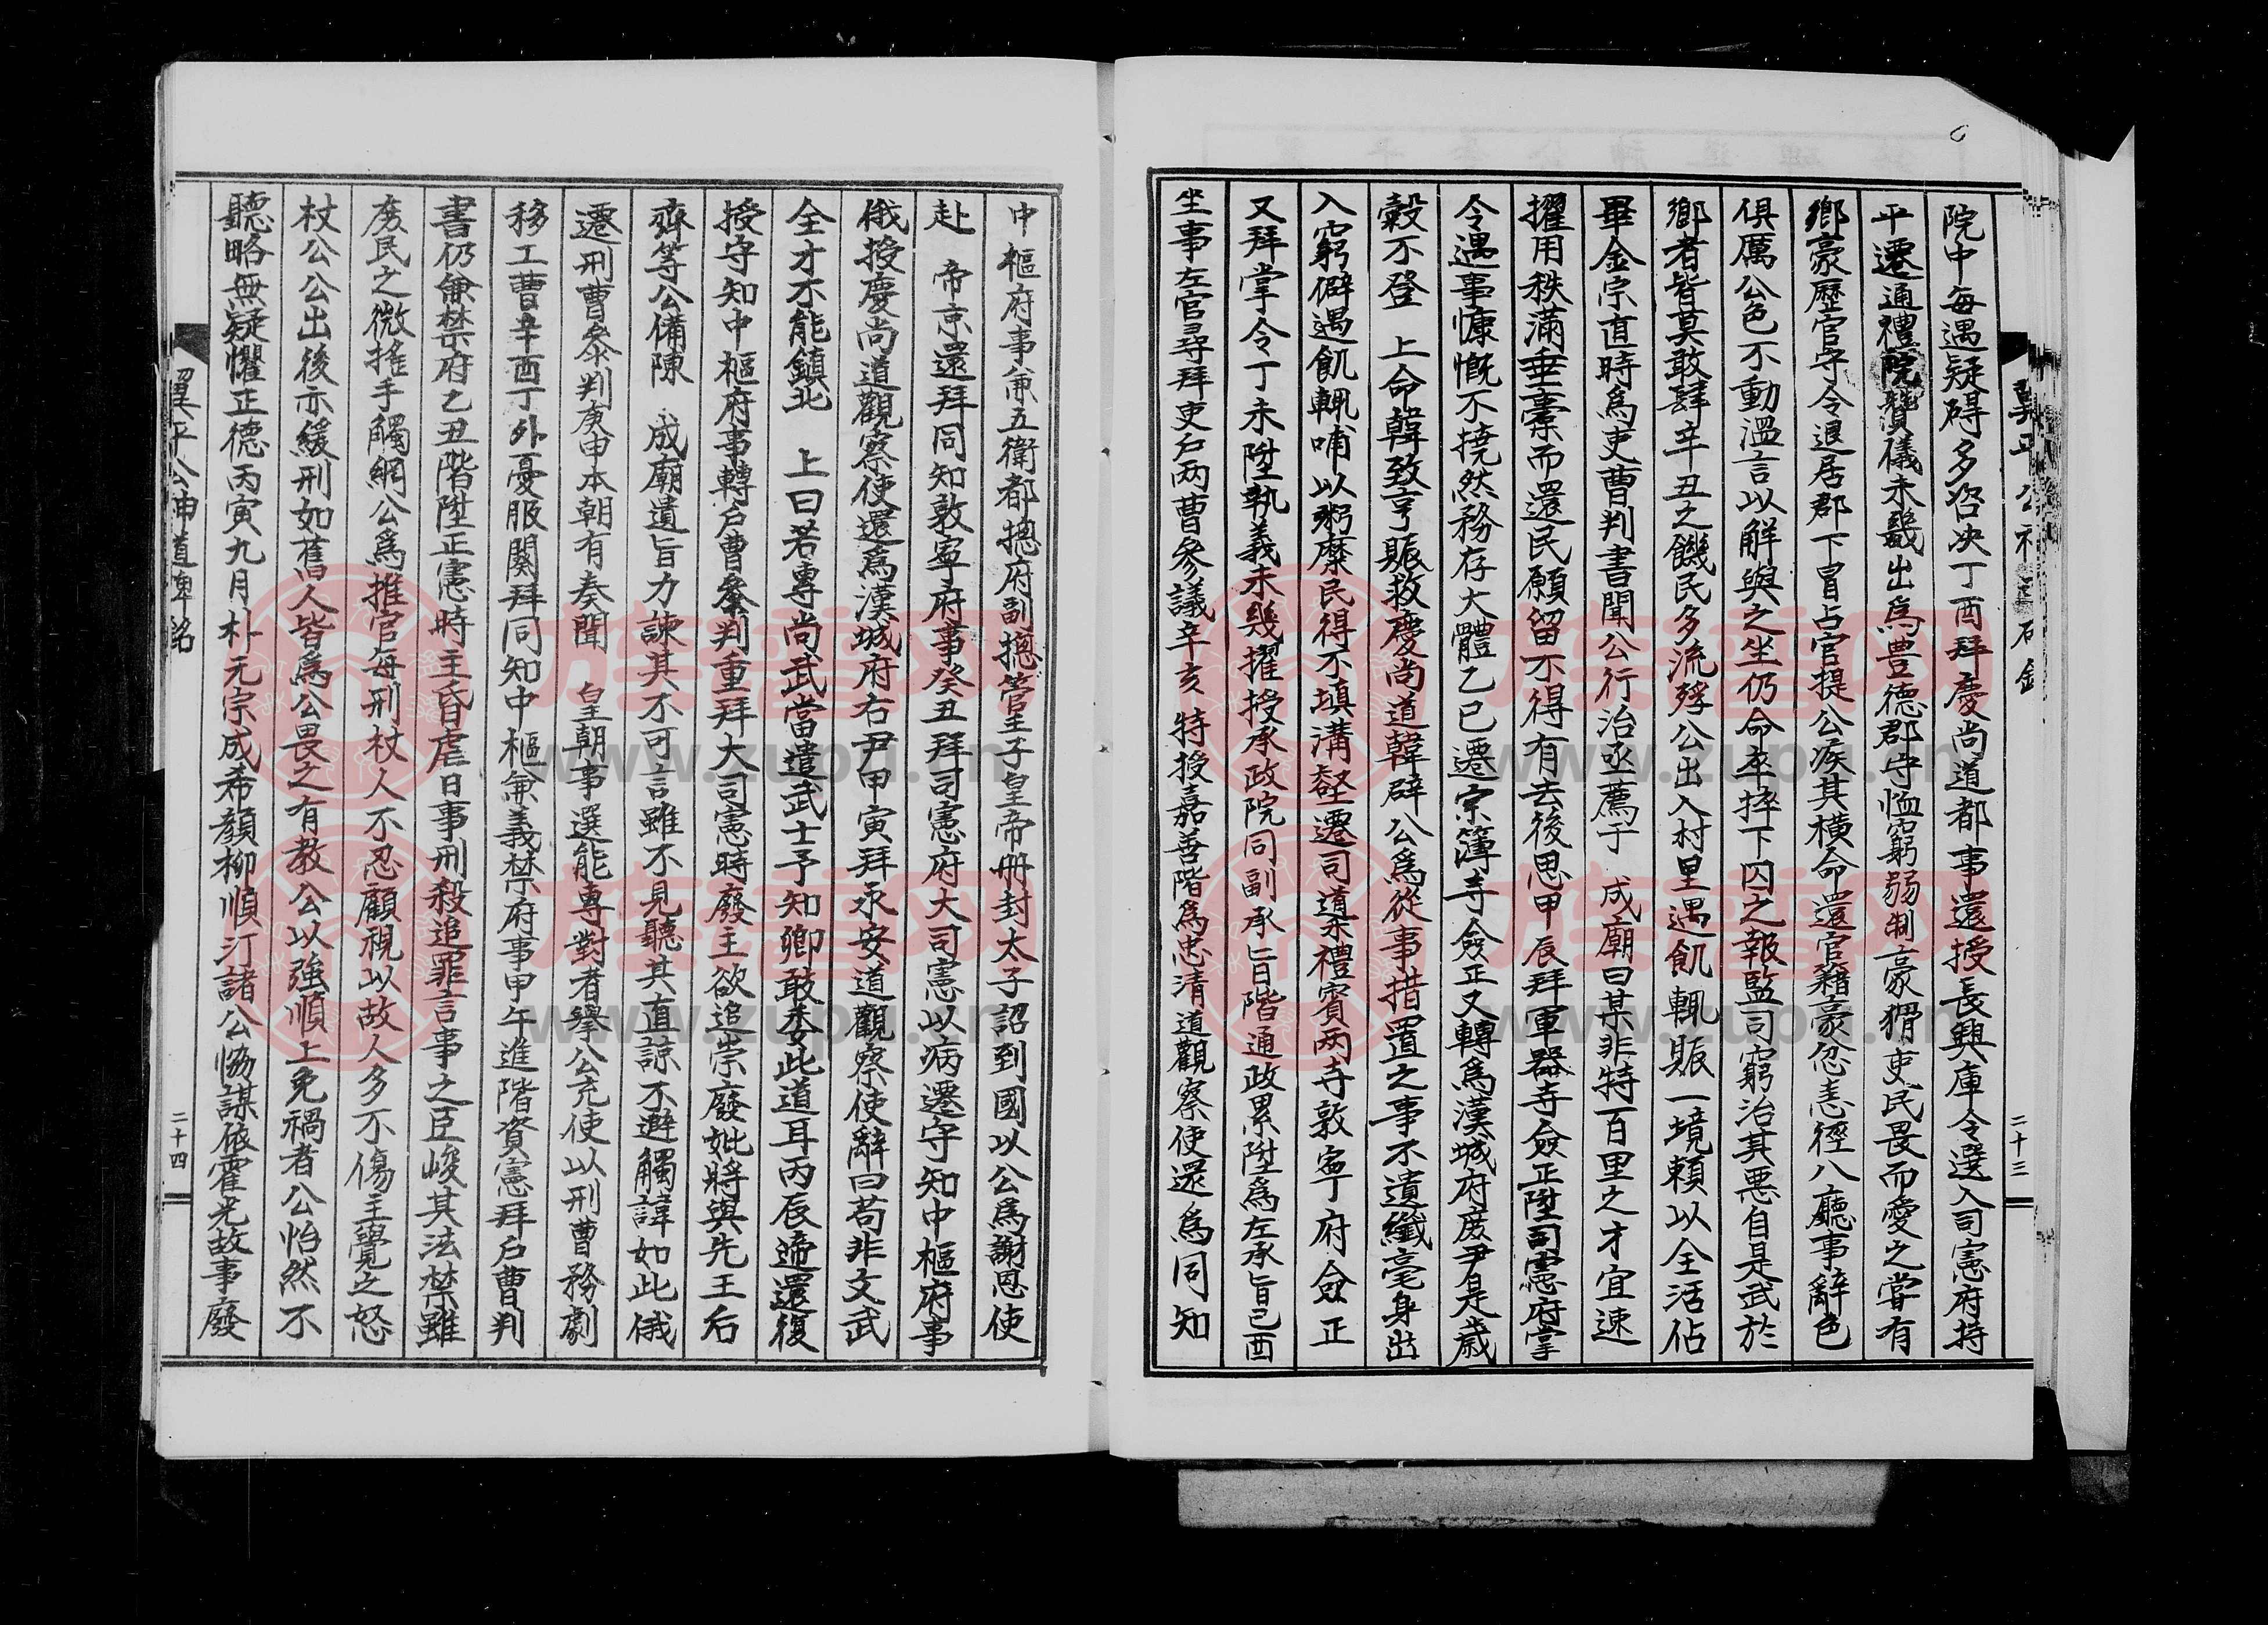 翼平公神道碑銘
二十三
院中每遇疑碍多咨决丁酉拜慶尚道都事還授長興庫令選入司憲府持
平遷通禮院贊儀未幾出爲豊德郡守恤窮弱制豪猾吏民畏而愛之嘗有
鄉豪歷官守令退居郡下冒占官提公疾其橫命還官籍豪忿恚徑入廳事辭色
俱厲公色不動溫言以解與之坐仍命卒捽下囚之報監司窮治其悪自是武於
鄉者皆莫敢肆辛丑之饑民多流殍公出入村里遇飢輒賑一境賴以全活佔
畢金宗直時爲吏曹判書聞公行治亟薦于 成廟曰某非特百里之才宜速
擢用秩滿垂橐而還民願留不得有去後思甲辰拜軍器寺僉正陞司憲府掌
令遇事慷慨不撓然務存大體乙巳遷宗簿寺僉正又轉爲漢城府庶尹是歲
穀不登 上命韓致亨賑救慶尚道韓辟公爲從事措置之事不遺纖毫身出
入窮僻遇飢輒哺以粥糜民得不塡溝壑遷司導禮賓两寺敦寧府僉正
又拜掌令丁未陞執義未幾擢授承政院同副承旨階通政累陞爲左承旨己酉
坐事左官尋拜吏戶两曹參議辛亥 特授嘉善階爲忠清道觀察使還爲同知
中樞府事兼五衛都摠府副摠管壬子皇帝冊封太子詔到國以公爲謝恩使
赴 帝京還拜同知敦寧府事癸丑拜司憲府大司憲以病遷守知中樞府事
俄授慶尚道觀察使還爲漢城府右尹甲寅拜永安道觀察使辭曰苟非文武
全才不能鎮北 上曰若專尚武當遣武士予知卿敢委此道耳丙辰遞還復
授守知中樞府事轉戶曹叅判重拜大司憲時廢主欲追崇廢妣將與先王后
齊等公備陳 成廟遺旨力諫其不可言雖不見聽其直諒不避觸諱如此俄
遷刑曹叅判庚申本朝有奏聞 皇朝事選能專對者擧公充使以刑曹務劇
移工曹辛酉丁外憂服闋拜同知中樞兼義禁府事甲午進階資憲拜戶曹判
書仍兼禁府乙丑階陞正憲時主昏虐日事刑殺追罪言事之臣峻其法禁雖
庶民之微搖手觸網公爲推官每刑杖人不忍顧視以故人多不傷主覺之怒
杖公公出後亦緩刑如舊人皆爲公畏之有教公以強順上免禍者公怡然不
聽略無疑懼正德丙寅九月朴元宗成希顏柳順汀諸公恊謀依霍光故事廢
翼平公神道碑銘
二十四
族譜网
www.zupu.cn
族譜网
www.zupu.cn
族譜网
www.zupu.cn
族譜网
www.zupu.cn